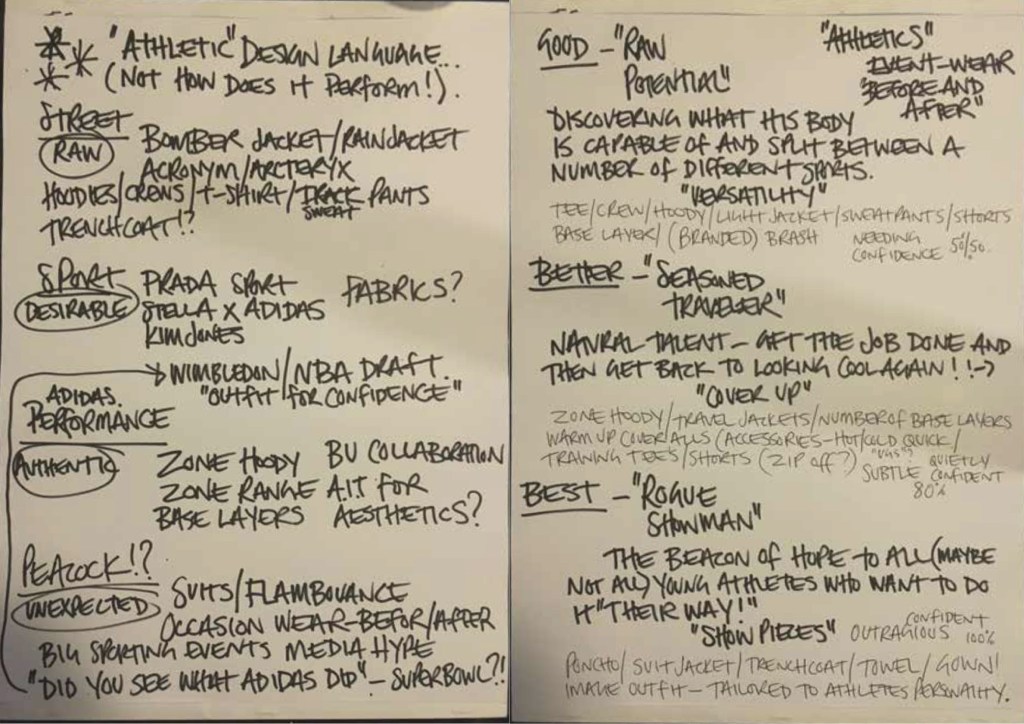 "ATHLETIC" DESIGN LANGUAGE...
(NOT HOW DOES IT PERFORM!).
STREET
RAW
BOMBER JACKET/RAINJACKET
ACRONYM/ARCTERYX
HOODIES/CREWS/T-SHIRT/TRACK PANTS
SWEAT
TRENCHCOAT!?
SPORT
DESIRABLE
PRADA SPORT
FABRICS?
STELLA X ADIDAS
KIM JONES
WIMBLEDON/NBA DRAFT.
"OUTFIT FOR CONFIDENCE"
ADIDAS.
PERFORMANCE
AUTHENTIC
ZONE HOODY BU COLLABORATION
ZONE RANGE A.I.T FOR
BASE LAYERS AESTHETICS?
PEACOCK!?
UNEXPECTED
SUITS/FLAMBOUANCE
OCCASION WEAR-BEFOR/AFTER
BIG SPORTING EVENTS MEDIA HYPE
"DID YOU SEE WHAT ADIDAS DID" - SUPERBOWL?!
GOOD - "RAW
POTENTIAL"
"ATHLETICS"
EVENT-WEAR
BEFORE AND
AFTER"
DISCOVERING WHAT HIS BODY
IS CAPABLE OF AND SPLIT BETWEEN A
NUMBER OF DIFFERENT SPORTS.
"VERSATILITY"
TEE/CREW/HOODY/LIGHT JACKET/SWEATPANTS/SHORTS
BASE LAYER/(BRANDED) BRASH
NEEDING
CONFIDENCE 50/50.
BETTER - "SEASONED
TRAVELER"
NATURAL TALENT - GET THE JOB DONE AND
THEN GET BACK TO LOOKING COOL AGAIN!!->
"COVER UP"
ZONE HOODY/TRAVEL JACKETS/NUMBER OF BASE LAYERS
WARM UP COVERALLS (ACCESSORIES-HOT/COLD QUICK/
TRAINING TEES/SHORTS (ZIP OFF?)
QUIETLY
SUBTLE CONFIDENT
80%
BEST - "ROGUE
SHOWMAN"
THE BEACON OF HOPE TO ALL (MAYBE
NOT ALL) YOUNG ATHLETES WHO WANT TO DO
IT "THEIR WAY!"
"SHOW PIECES" OUTRAGIOUS
CONFIDENT
100%
PONCHO/SUIT JACKET/TRENCHCOAT/TOWEL/GOWN!
IMAGE OUTFIT - TAILORED TO ATHLETES PERSONALITY.